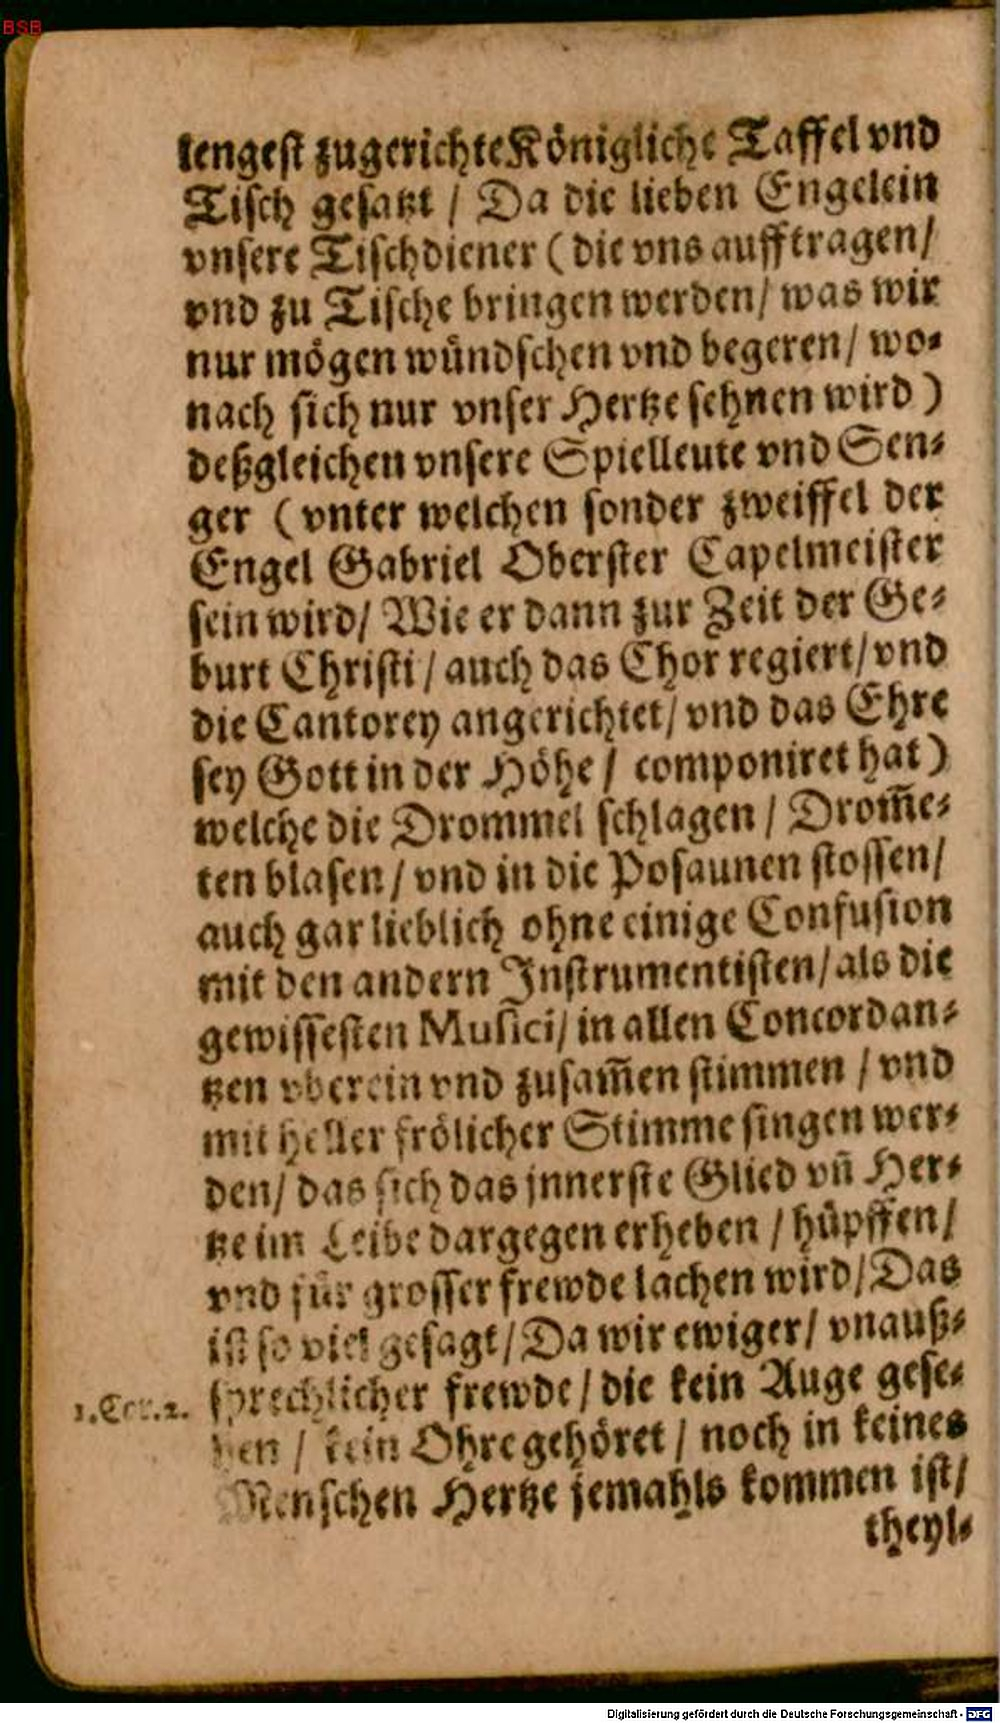 BSB
lengest zugerichte Königliche Taffel vnd
Tisch gesatzt / Da die lieben Engelein
vnsere Tischdiener ( die vns aufftragen /
vnd zu Tische bringen werden / was wir
nur mögen wündschen vnd begeren / wo-
nach sich nur vnser Hertze sehnen wird )
deßgleichen vnsere Spielleute vnd Sen-
ger ( vnter welchen sonder zweiffel der
Engel Gabriel Oberster Capelmeister
sein wird / Wie er dann zur Zeit der Ge-
burt Christi / auch das Chor regiert / vnd
die Cantorey angerichtet / vnd das Ehre
sey Gott in der Höhe / componiret hat )
welche die Drommel schlagen / Drom̃e-
ten blasen / vnd in die Posaunen stossen /
auch gar lieblich ohne einige Confusion
mit den andern Instrumentisten / als die
gewissesten Musici / in allen Concordan-
tzen vberein vnd zusam̃en stimmen / vnd
mit heller frölicher Stimme singen wer-
den / das sich das jnnerste Glied vñ Her-
tze im Leibe dargegen erheben / hüpffen /
vnd für grosser frewde lachen wird / Das
ist so viel gesagt / Da wir ewiger / vnauß-
1. Cor. 2. sprechlicher frewde / die kein Auge gese-
hen / kein Ohre gehöret / noch in keines
Menschen Hertze jemahls kommen ist /
theyl-
Digitalisierung gefördert durch die Deutsche Forschungsgemeinschaft - DFG